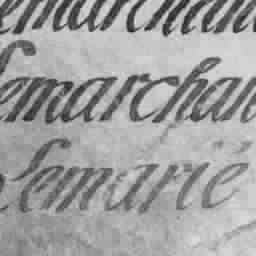 Lemarchand
Lemarchan
Lemarié